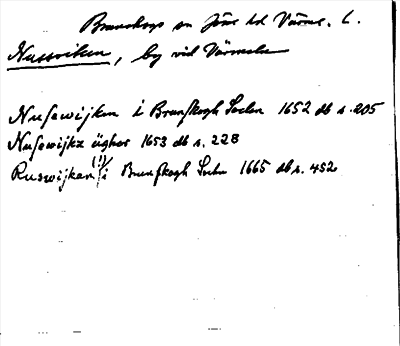 Brunskogs sn Jösse hd Värml. L.
Nussviken, by vid Värmeln
Nusewijken i Brunskogh Sochn 1652 db s. 205
Nusewijkz ägher 1653 db s. 228
Ruswijkan (!) i Brunskogh Sochn 1665 db s. 452